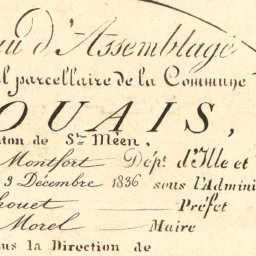 au d'Assemblage
l parcellaire de la Commune
OUAIS,
ton de St. Méen.
Montfort Dépt. d'Ille et
9 Décembre 1836 sous l'Admini
houet Préfet
Morel Maire
ous la Direction de